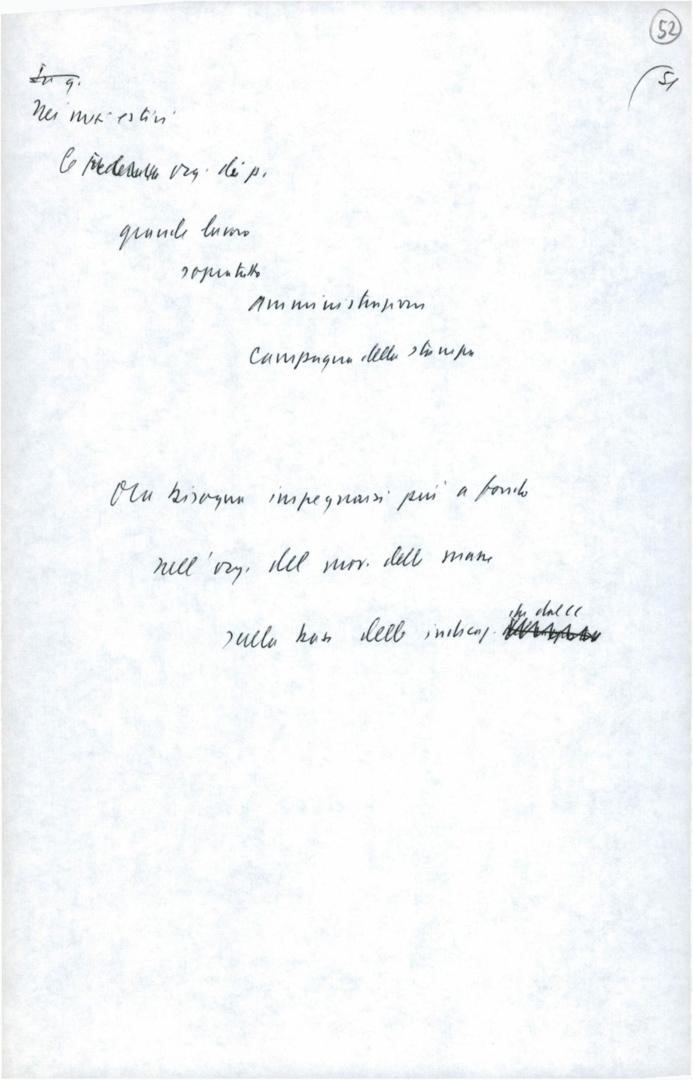 52
51
In q.
Nei mesi estivi
le org. di p.
grande lavoro
sopratutto
Amministrazioni
Campagna della stampa
Ora bisogna impegnarsi più a fondo
nell'org. del mov. delle masse
in dalle
sulla base delle indicaz.